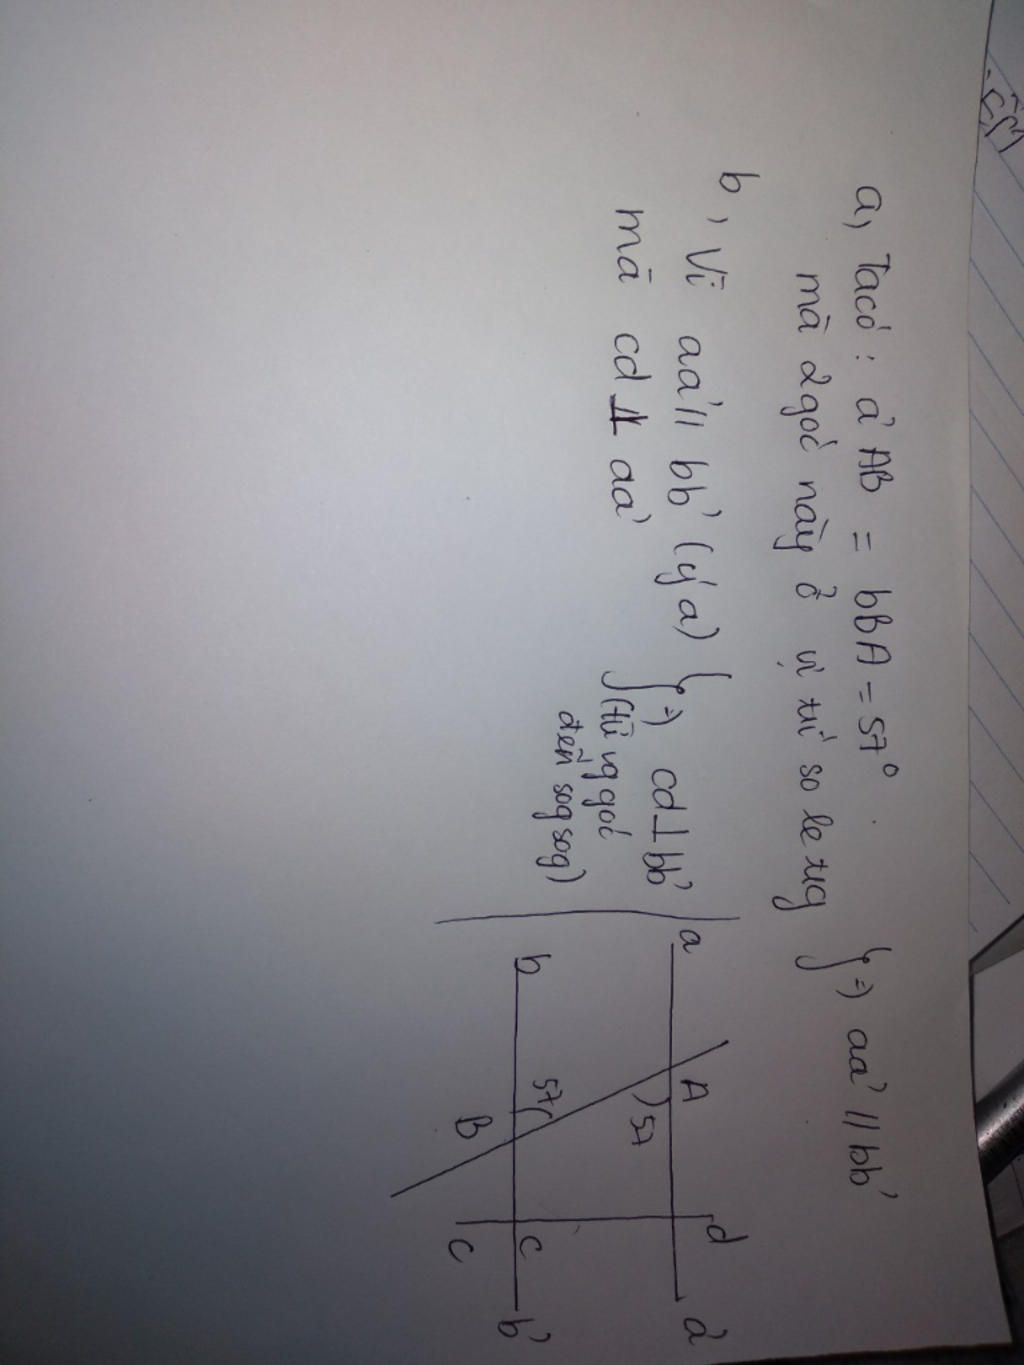 a, Ta có : a'AB = bBA = 57°
mà 2 góc này ở vị trí so le trg } => aa' // bb'
b, Vì aa' // bb' (ý a)
mà cd ⊥ aa' } => cd ⊥ bb'
(từ vg góc
đến sog sog)
a
A
57
d
a'
b
57
B
C
c
b'